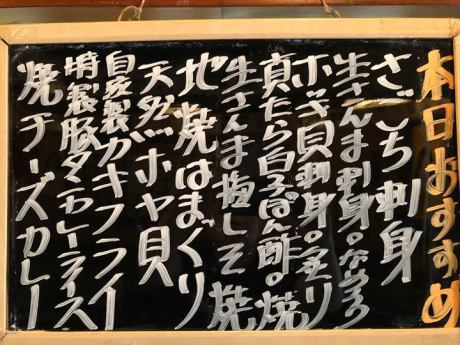 本日おすすめ
さごち刺身
生さんま刺身。なめろう
ホッキ貝刺身。炙り
真たら白子ぽん酢。焼
生さんま梅しそ焼
地焼はまぐり
天然ホヤ貝
自家製カキフライ
特製豚タンカレーライス
焼チーズカレー